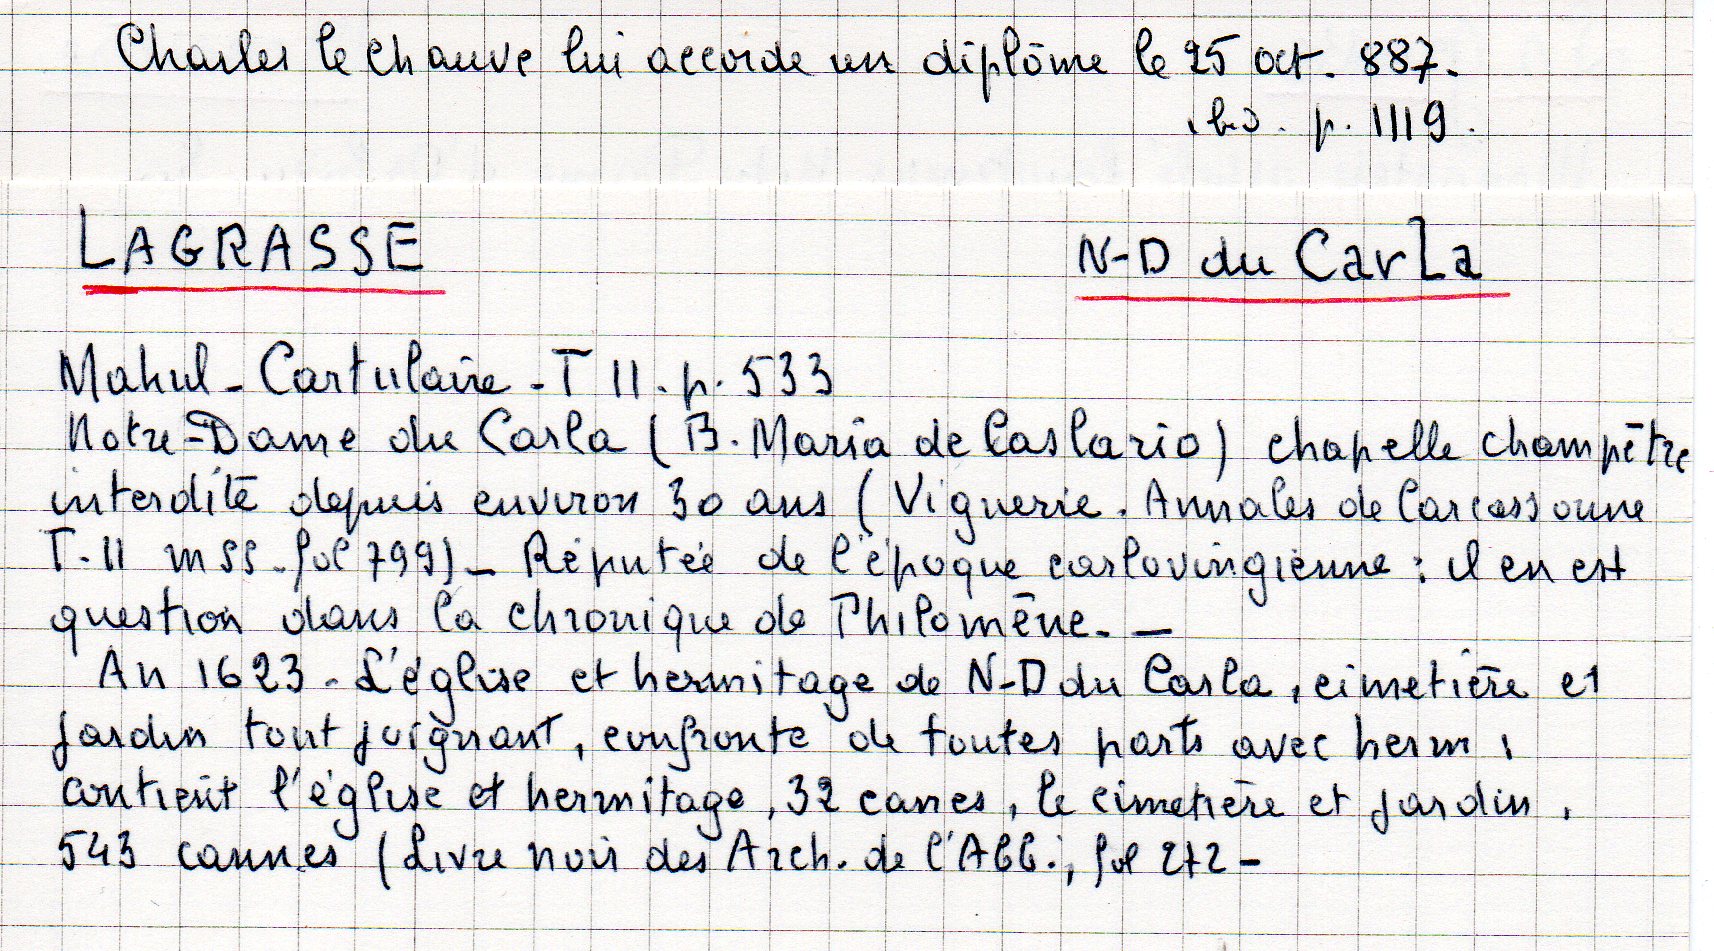 Charles le Chauve lui accorde un diplôme le 25 oct. 887.
ibid. p. 1119.
LAGRASSE N-D du Carla
Mahul - Cartulaire - T II. p. 533
Notre-Dame du Carla (B. Maria de Caslario) chapelle champêtre
interdite depuis environ 30 ans (Viguerie. Annales de Carcassonne
T. II mss. fol 799) - Réputée de l'époque carlovingienne : il en est
question dans la chronique de Philomène. -
An 1623 - L'église et hermitage de N-D du Carla, cimetière et
jardin tout joignant, confronte de toutes parts avec herm ;
contient l'église et hermitage, 32 canes, le cimetière et jardin,
543 cannes (Livre noir des Arch. de l'Abb., fol 272 -